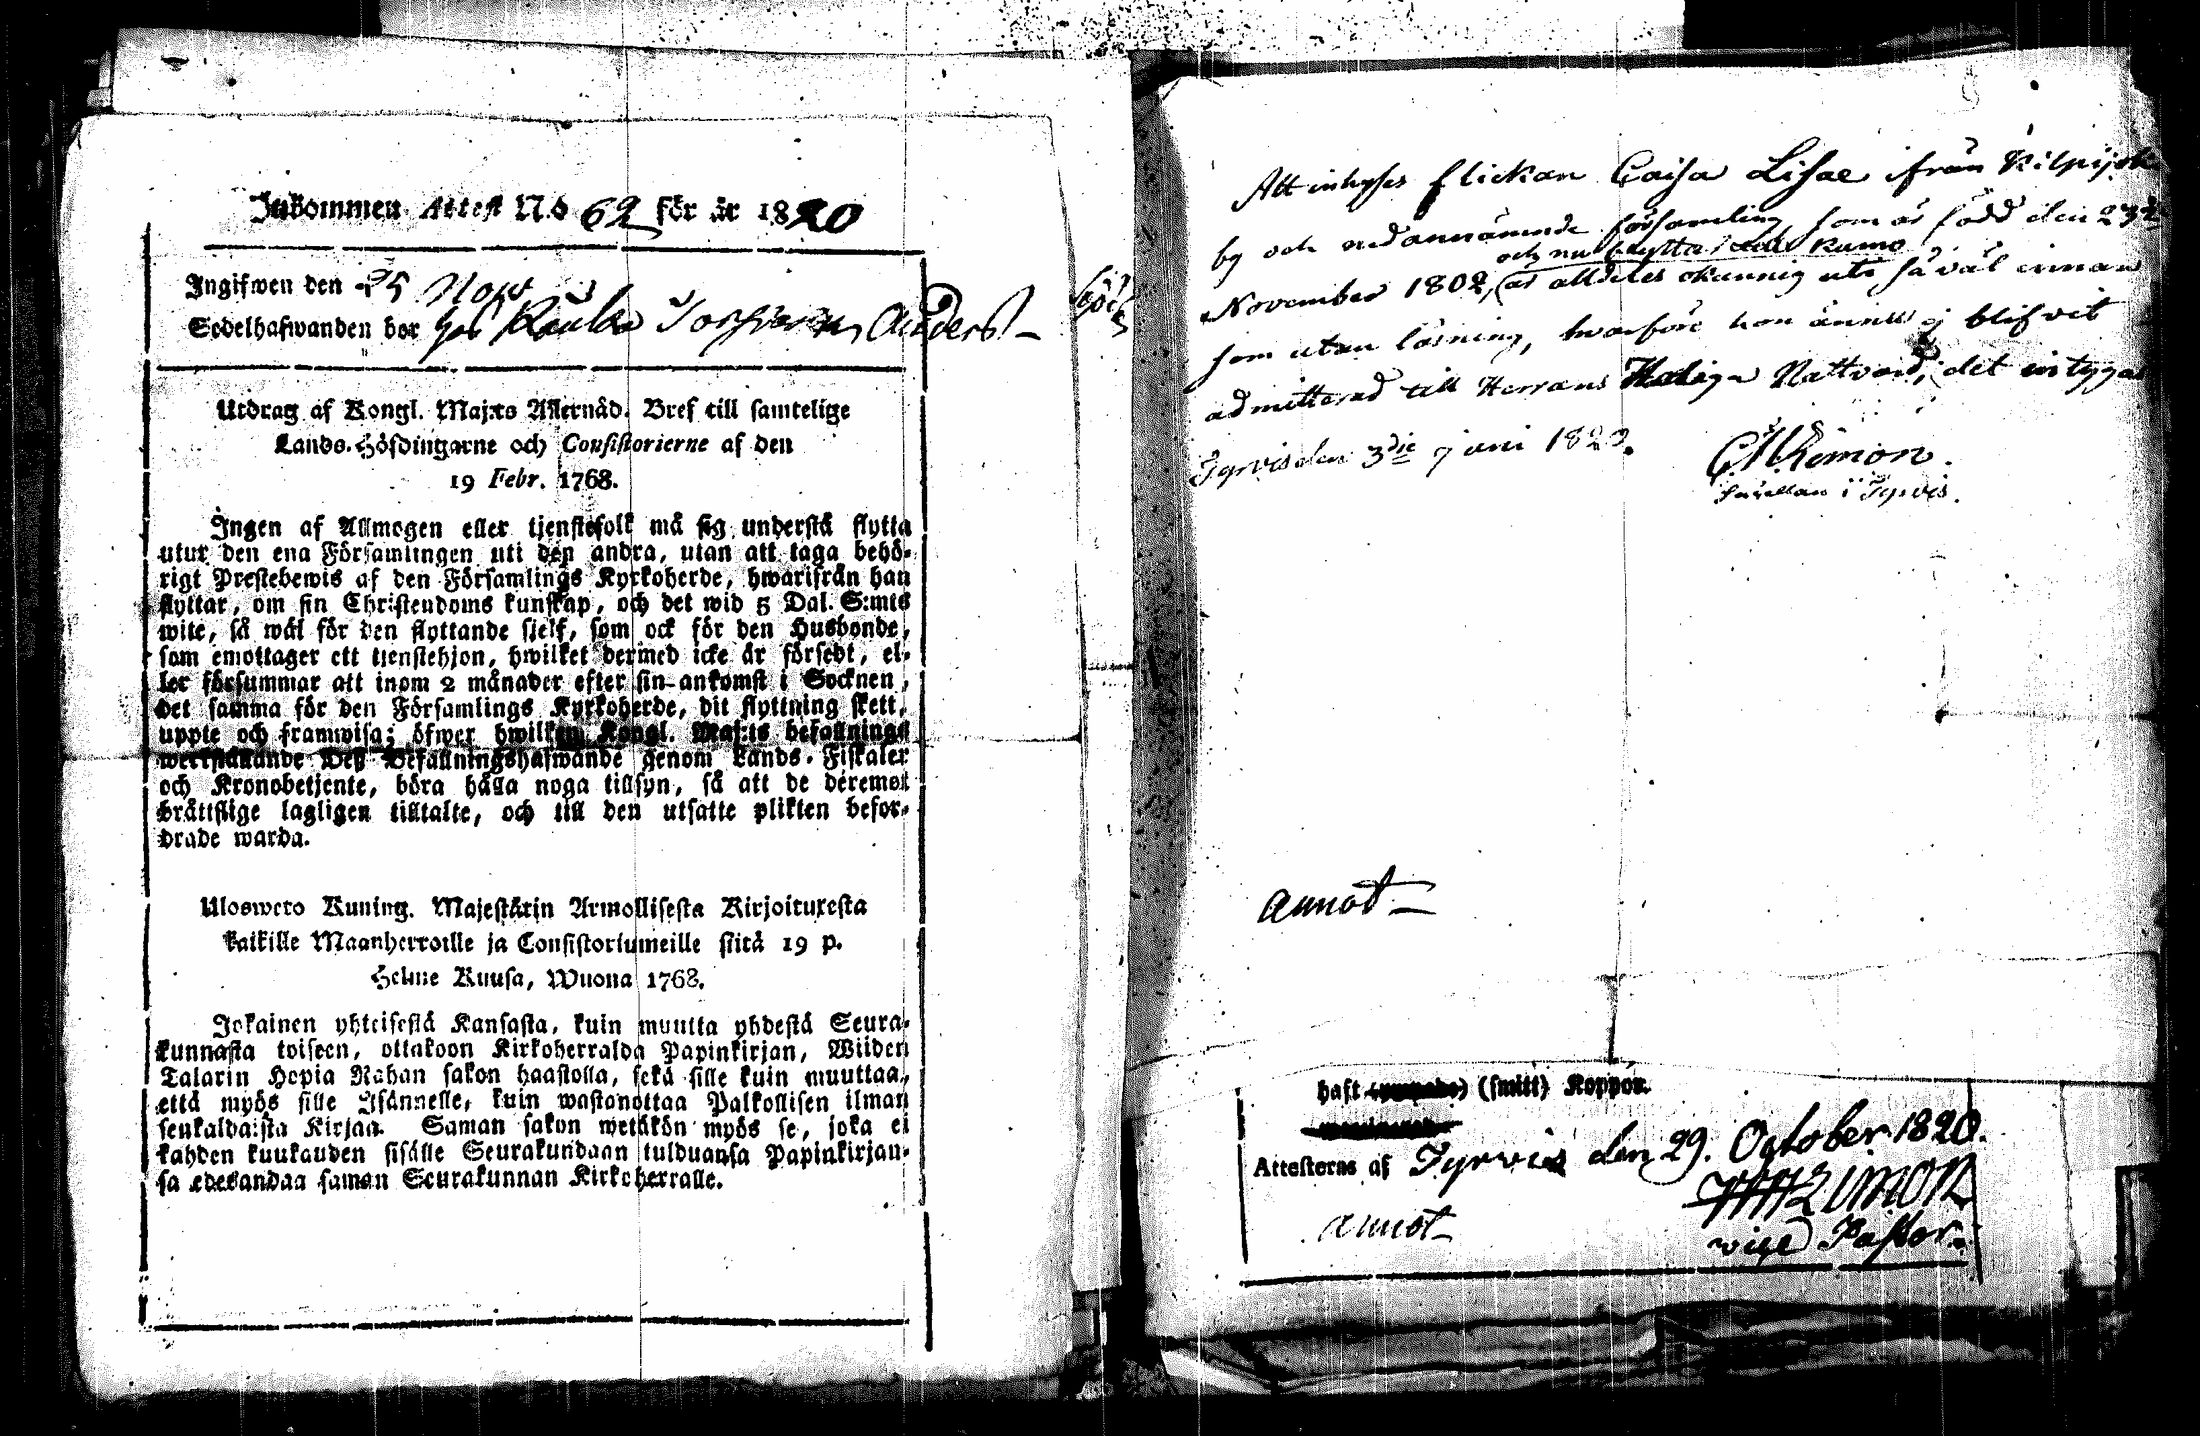 Inkommen Attest N:o 62 för år 1820
Ingifwen den 25 Nov
Sedelhafwanden bor hos Raula Anderst
Utdrag af Kongl. Maj:ts Allernåd. Bref till samtelige
Lands-Höfdingarne och Consistorierne af den
19 Febr. 1768.
Ingen af Allmogen eller tjenstefolk må sig understå flytta
utur den ena Församlingen uti den andra, utan att taga behö-
rigt Prestebewis af den Församlings Kyrkoherde, hwarifrån han
flyttar, om sin Christendoms kunskap, och det wid 5 Dal. S:mts
wite, så wäl för den flyttande sjelf, som ock för den Husbonde,
som emottager ett tjenstehjon, hwilket dermed icke är försedt, el-
ler försummar att inom 2 månader efter sin ankomst i Socknen,
det samma för den Församlings Kyrkoherde, dit flyttning skett,
uppte och framwisa; öfwer hwilken Kongl. Maj:ts befallnings
werkställande Deß Befallningshafwande genom Lands-Fiskaler
och Kronobetjente, böra hålla noga tillsyn, så att de deremot
brättslige lagligen tilltalte, och till den utsatte plikten befor-
drade warda.
Ulosweto Kuning. Majestätin Armollisesta Kirjoituxesta
kaikille Maanherroille ja Consistoriumeille siitä 19 p.
Helme Kuusa, Wuona 1768.
Jokainen yhteisestä Kansasta, kuin muutta yhdestä Seura-
kunnasta toiseen, ottakoon Kirkoherralda Papinkirjan, Wiiden
Talarin Hopia Rahan sakon haastolla, sekä sille kuin muuttaa,
että myös sille Isännelle, kuin wastanottaa Palkollisen ilman
senkaldaista Kirjaa. Saman sakon wetäkön myös se, joka ei
kahden kuukauden sisälle Seurakundaan tulduansa Papinkirjan-
sa edesandaa saman Seurakunnan Kirkoherralle.
Att inhyses flickan Caisa Lisae ifrån Kilpijoki
by och nedannämnde församling som är född den 23:
och nu flyttar till Kumo
November 1802, är alldeles okunnig uti såväl innan
som utan läsning, hvarföre hon ännu ej blifvit
admitterad till Herrans Heliga Nattvard, det intygas
Tyrvis den 3die Juni 1820.
Limon
Capellan i Tyrvis.
annot
haft (smitt) Koppor.
Attesteras af Tyrvis den 29. October 1820.
LIMON
vice Pastor.
annot